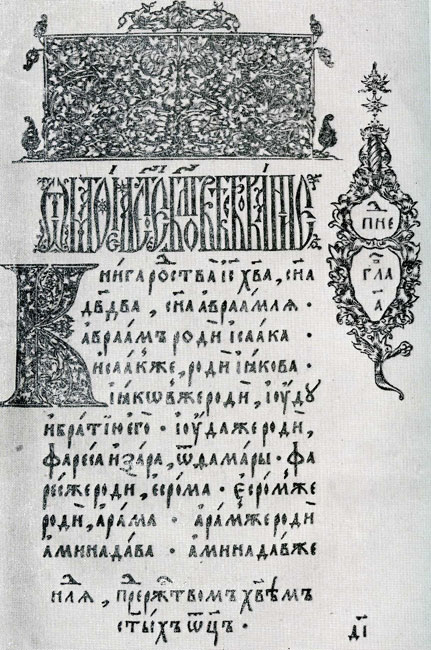 пнеⷣ
глаⷡ
а҃
Книга роⷣства іс҃ хв҃а, сн҃а
дв҃два, сн҃а авраамля ·
авраа́мъ родѝ ісаа́ка ·
исаа́кже, родѝ ія́кова ·
ія́ков же родѝ, іоу҆́ду
и҆бра́тію е҆го̀ · іоу́да же родѝ,
фа́реса и҆ за́ра, ѿ дама́ры · фа
ре́сже родѝ, есро́ма · есро́мже
родѝ, ара́ма · ара́мже родѝ
аминада́ва · аминада́вже
неⷣ́ля, преⷣ ржⷭ҇твомъ хв҃ѣмъ
ст҃ыхъ ѿц҃ъ ·
д҃і